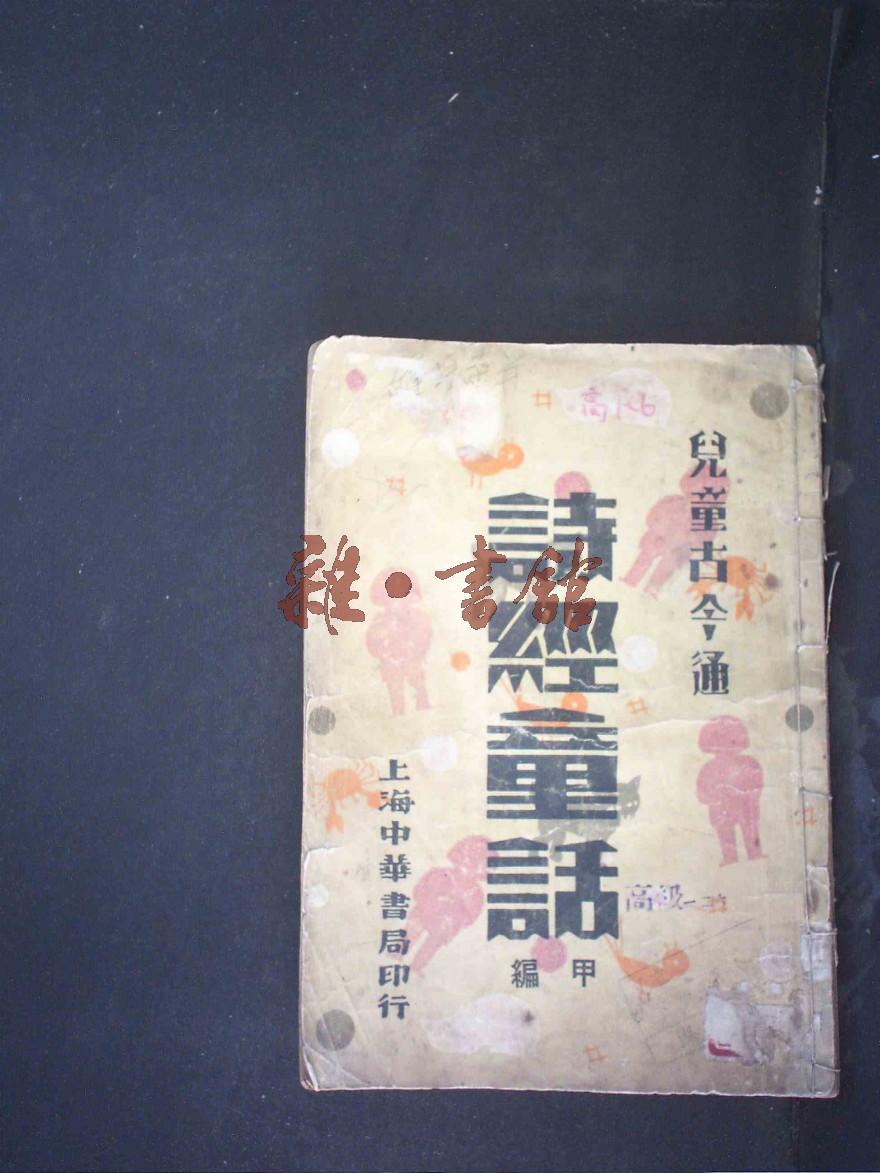 兒童古今通
詩經童話
甲編
上海中華書局印行
高級
雜·書館